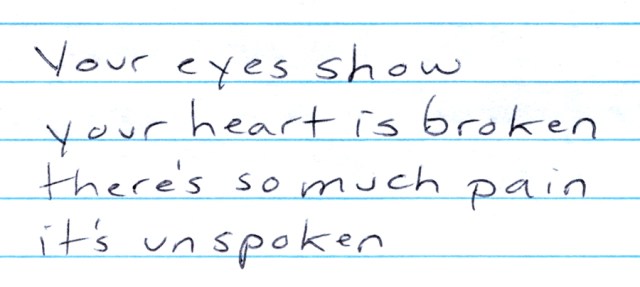 Your eyes show
your heart is broken
there's so much pain
it's unspoken